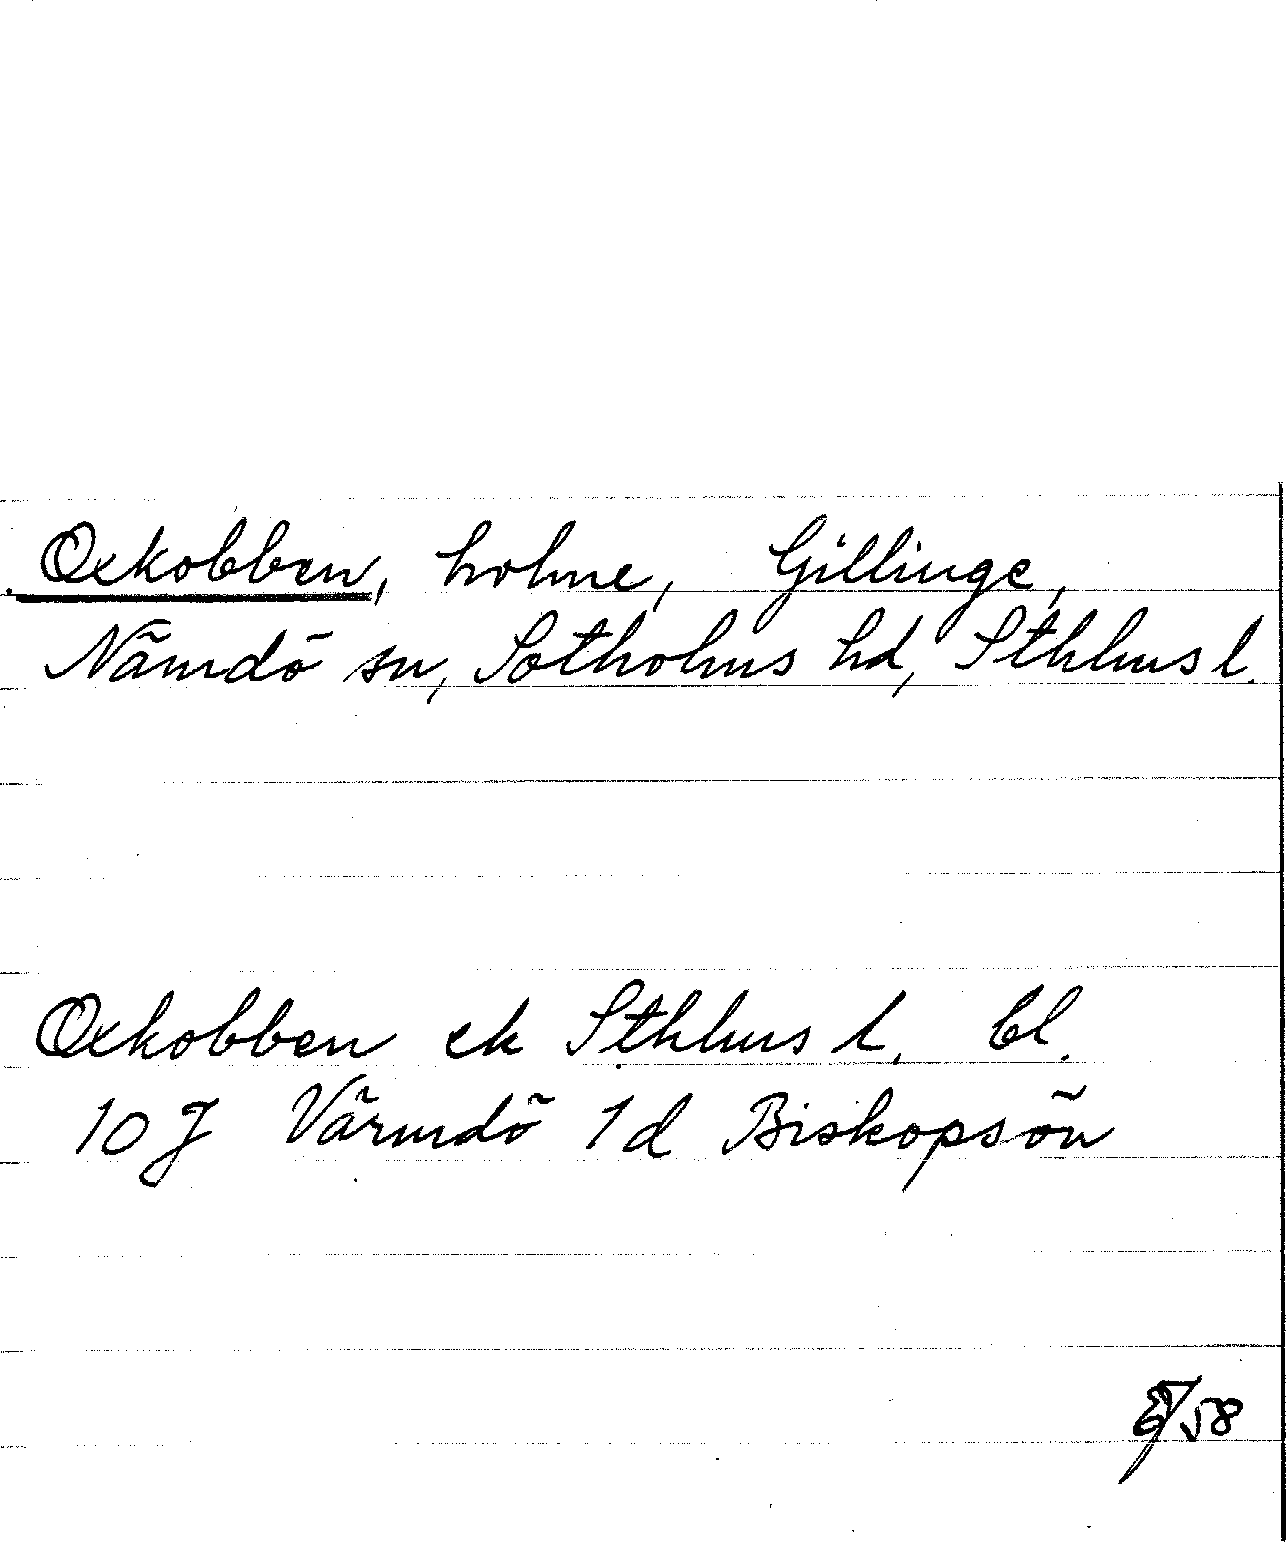 Oxkobben, holme, Gillinge,
Nämdö sn, Sotholms hd, Sthlms l.
Oxkobben ek Sthlms l, bl.
10 J Värmdö 1 d Biskopsön
58